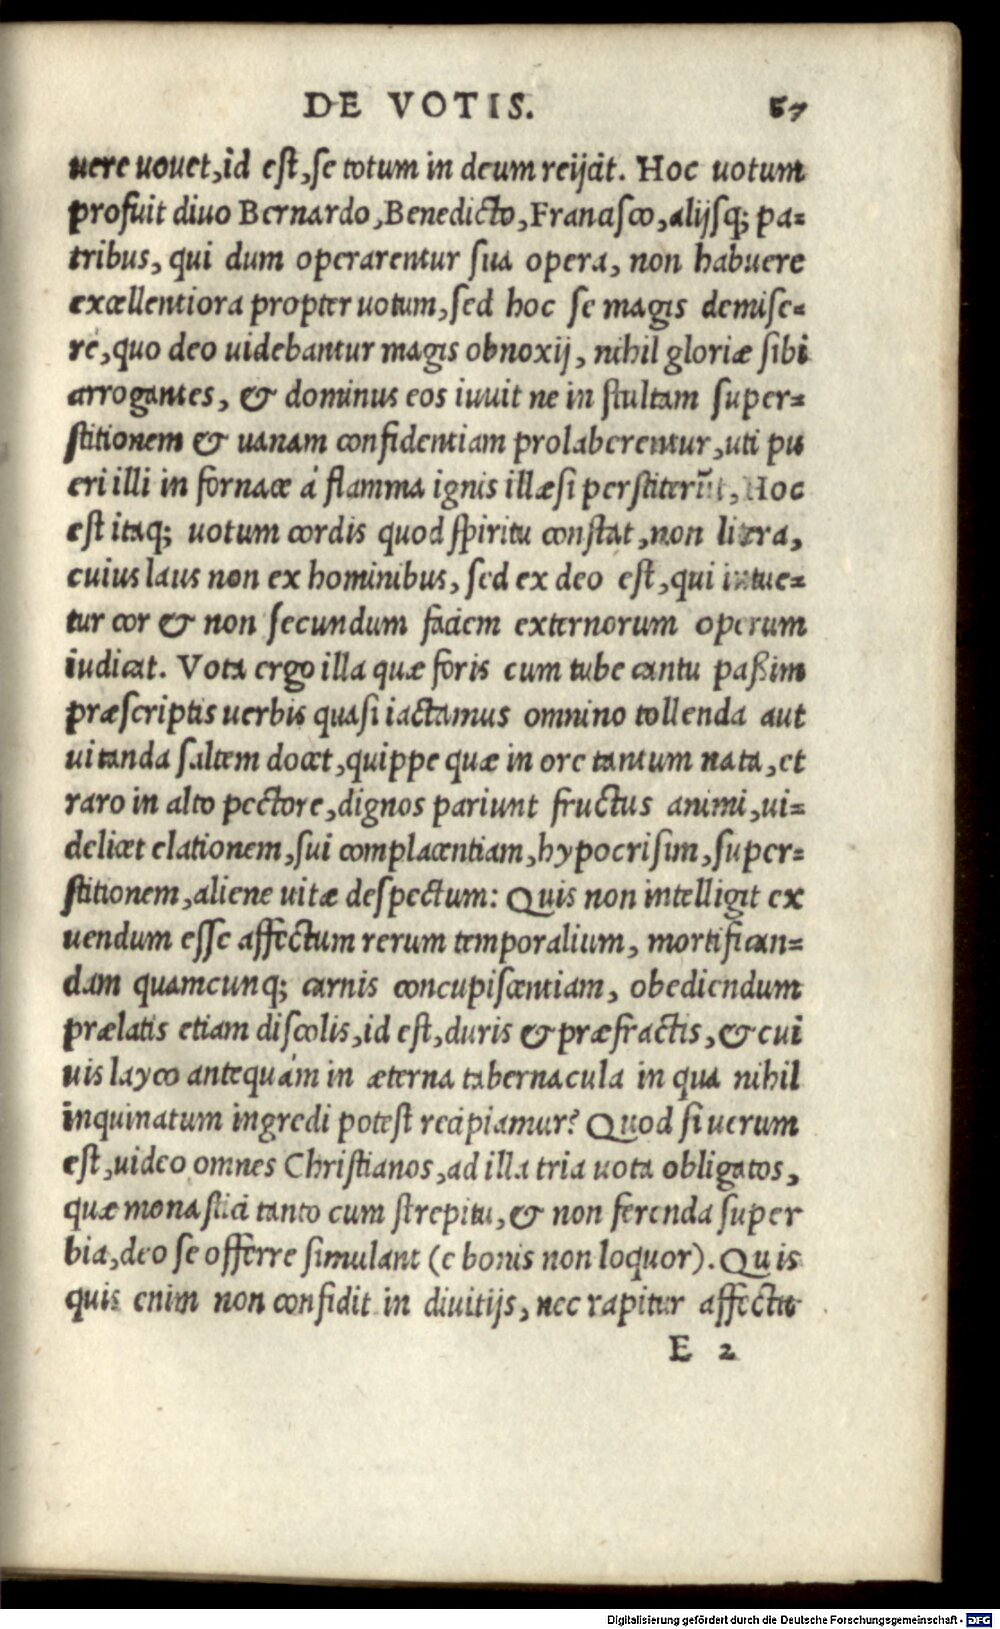 DE VOTIS. 67
uere uouet, id est, se totum in deum reijcit. Hoc uotum
profuit diuo Bernardo, Benedicto, Francisco, alijsq; pa=
tribus, qui dum operarentur sua opera, non habuere
excellentiora propter uotum, sed hoc se magis demise=
re, quo deo uidebantur magis obnoxij, nihil gloriæ sibi
arrogantes, & dominus eos iuuit ne in stultam super=
stitionem & uanam confidentiam prolaberentur, uti pu
eri illi in fornace à flamma ignis illæsi perstiterūt, Hoc
est itaq; uotum cordis quod spiritu constat, non litera,
cuius laus non ex hominibus, sed ex deo est, qui intue=
tur cor & non secundum faciem externorum operum
iudicat. Vota ergo illa quæ foris cum tube cantu paßim
præscriptis uerbis quasi iactamus omnino tollenda aut
uitanda saltem docet, quippe quæ in ore tantum nata, et
raro in alto pectore, dignos pariunt fructus animi, ui=
delicet elationem, sui complacentiam, hypocrisim, super=
stitionem, aliene uitæ despectum: Quis non intelligit ex
uendum esse affectum rerum temporalium, mortifican=
dam quamcunq; carnis concupiscentiam, obediendum
prælatis etiam discolis, id est, duris & præfractis, & cui
uis layco antequám in æterna tabernacula in qua nihil
inquinatum ingredi potest recipiamur? Quod si uerum
est, uideo omnes Christianos, ad illa tria uota obligatos,
quæ monastici tanto cum strepitu, & non ferenda super
bia, deo se offerre simulant (e bonis non loquor). Quis
quis enim non confidit in diuitijs, nec rapitur affectu
E 2
Digitalisierung gefördert durch die Deutsche Forschungsgemeinschaft - DFG